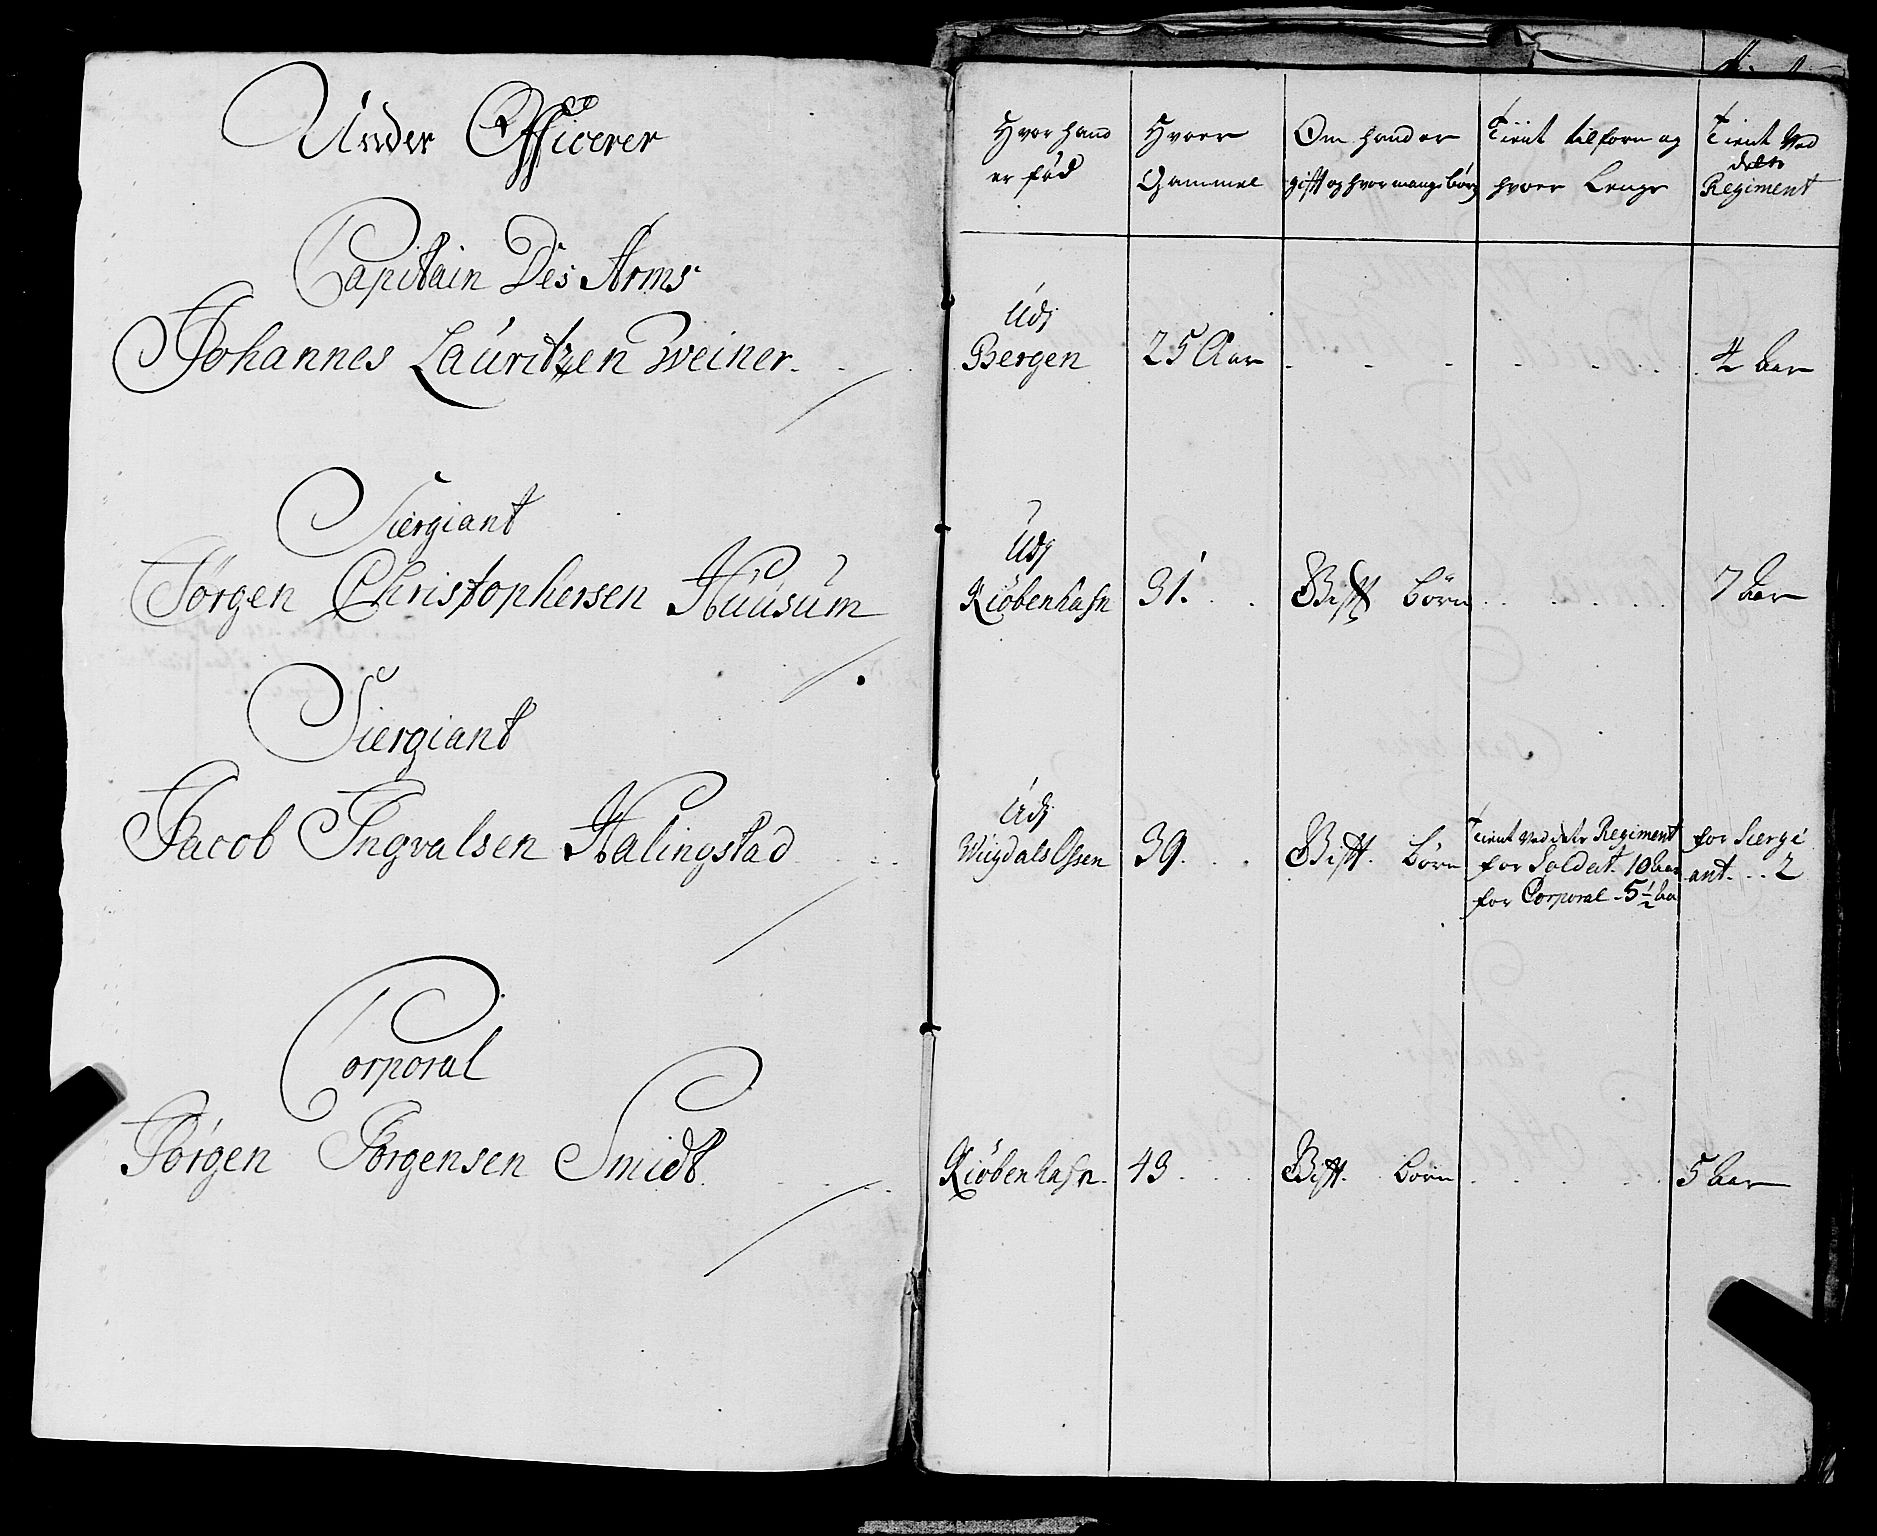 Under Officerer
Capitain Des Arms
Johannes Lauritzen Weiner
Siergiant
Jørgen Christophersen Huusum
Siergiant
Jacob Ingvalsen Halingstad
Corporal
Jørgen Jørgensen Smidt
Hvor hand er fød
Hvoer Gammel
Om hand er gift og hvor mange børn
Tient tilforn og hvoer Lenge
Tient Ved dette Regiment
Udj
Bergen 25 Aar 4 Aar
Udj
Kiøbenhafn 31. Gift Børn 7 Aar
Udj
39. Gift. Børn
Tient Ved dete Regiment
for Soldat 10 Aar
for Corporal 5 1/2 Aa
for Siergi
ant 2
Kiøbenhafn. 43 Gift. Børn 5 Aar